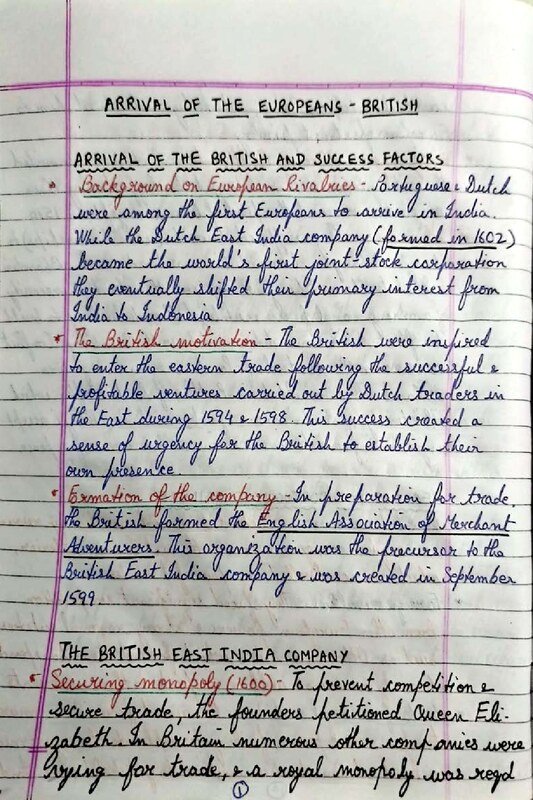 ARRIVAL OF THE EUROPEANS - BRITISH
ARRIVAL OF THE BRITISH AND SUCCESS FACTORS
• Background on European Rivalries - Portuguese & Dutch
were among the first Europeans to arrive in India.
While the Dutch East India company (formed in 1602)
became the world's first joint-stock corporation
they eventually shifted their primary interest from
India to Indonesia
• The British motivation - The British were inspired
to enter the eastern trade following the successful &
profitable ventures carried out by Dutch traders in
the East during 1594 & 1598. This success created a
sense of urgency for the British to establish their
own presence
• Formation of the company - In preparation for trade,
the British formed the English Association of Merchant
Adventurers. This organization was the precursor to the
British East India company & was created in September
1599.
THE BRITISH EAST INDIA COMPANY
• Securing monopoly (1600) - To prevent competition &
secure trade, the founders petitioned Queen Eli-
zabeth. In Britain numerous other companies were
vying for trade, & a royal monopoly was reqd
1